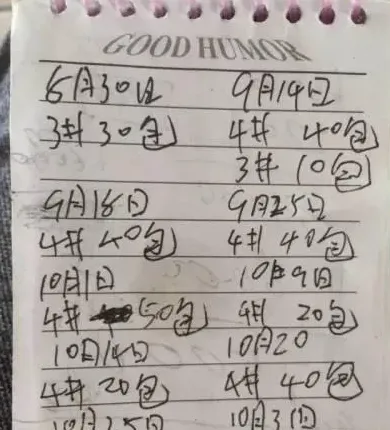 GOOD HUMOR
6月30日 9月14日
3# 30包 4# 40包
3# 10包
9月18日 9月25日
4# 40包 4# 40包
10月1日 10月9日
4# 50包 4# 20包
10月14日 10月20
4# 20包 4# 40包
10月25日 10月31日